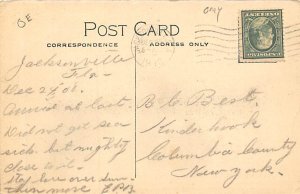 OE
POST CARD
CORRESPONDENCE
ADDRESS ONLY
Jacksonville
Fla-
Dec 2
Arrived at last.
Did not get sea
sick but mighty
close to it.
Stay here over Sun-
Best.
Kinderhook
Columbia County
New York.